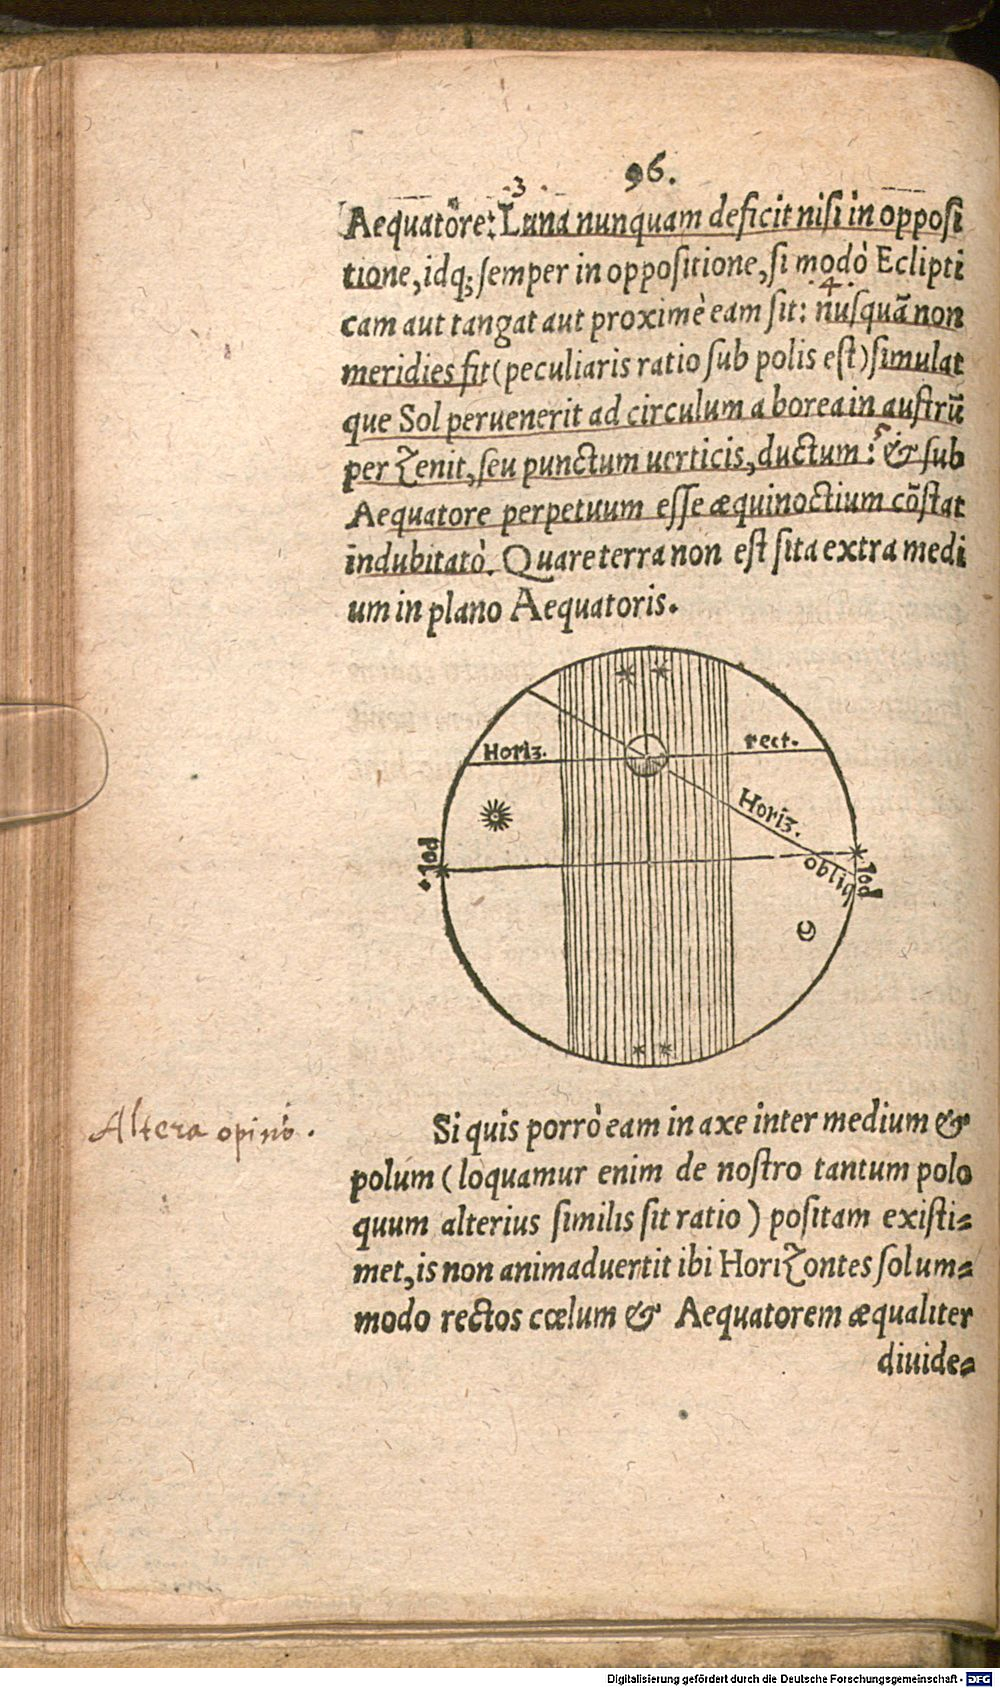 96.
3
Aequatore: Luna nunquam deficit nisi in opposi
tione, idq; semper in oppositione, si modò Eclipti
4
cam aut tangat aut proximè eam sit: nusquā non
meridies fit (peculiaris ratio sub polis est) simulat
que Sol peruenerit ad circulum a borea in austrū
5
per Zenit, seu punctum uerticis, ductum: & sub
Aequatore perpetuum esse æquinoctium cōstat
indubitatò. Quare terra non est sita extra medi
um in plano Aequatoris.
Horiz. rect.
Horiz.
obliq
pol.
pol.
Altera opinio.
Si quis porrò eam in axe inter medium &
polum (loquamur enim de nostro tantum polo
quum alterius similis sit ratio) positam existi=
met, is non animaduertit ibi HoriZontes solum=
modo rectos cœlum & Aequatorem æqualiter
diuide=
Digitalisierung gefördert durch die Deutsche Forschungsgemeinschaft - DFG